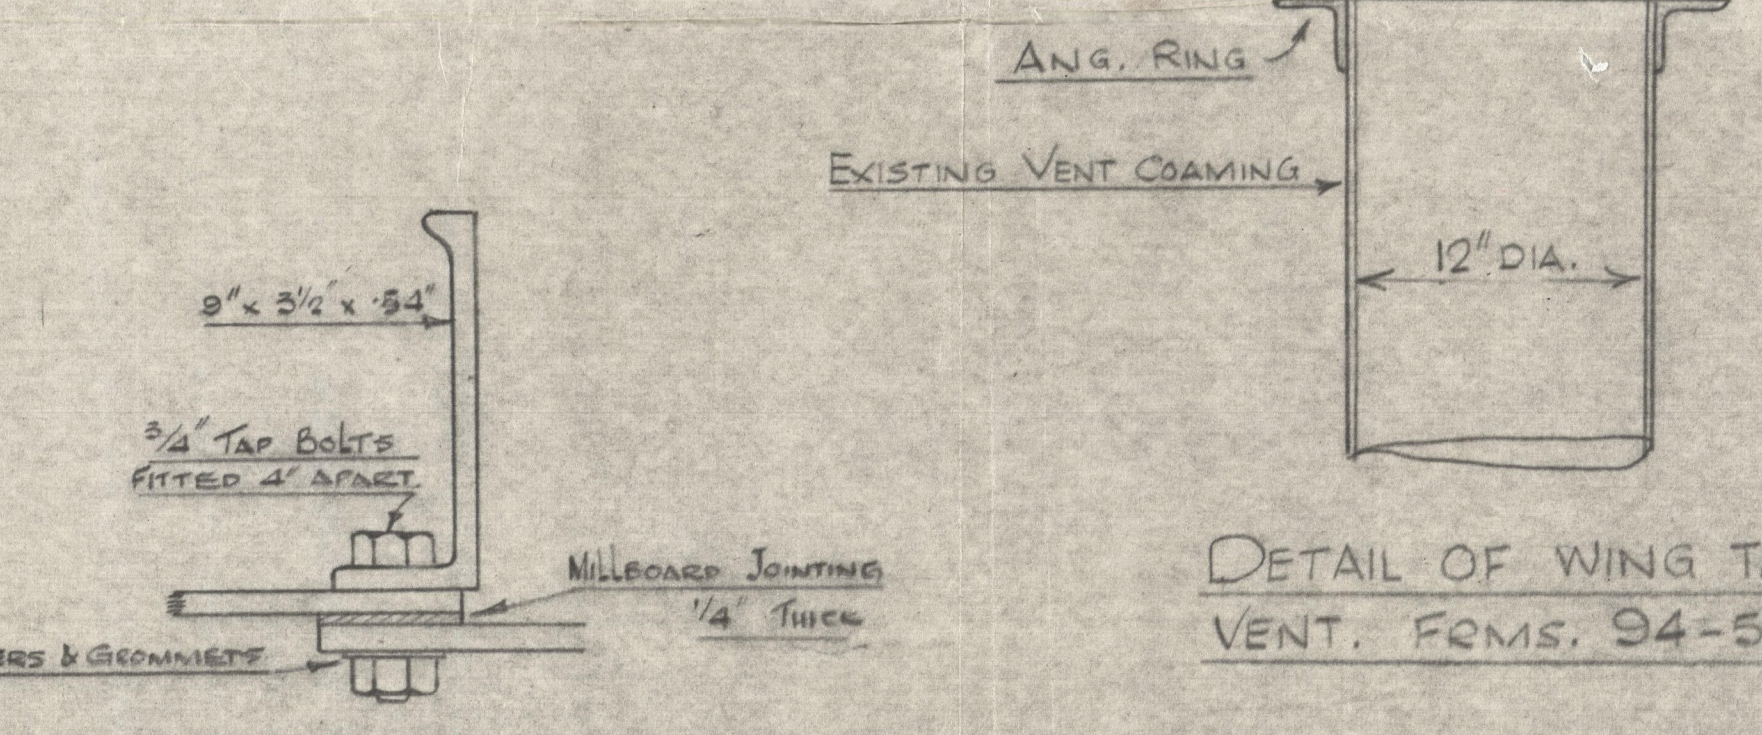 ANG. RING
EXISTING VENT COAMING
12" DIA.
9" x 3½" x .54"
3/4" TAP BOLTS
FITTED 4" APART.
MILLBOARD JOINTING
1/4" THICK
& GROMMETS
DETAIL OF WING
VENT. FRMS. 94-5